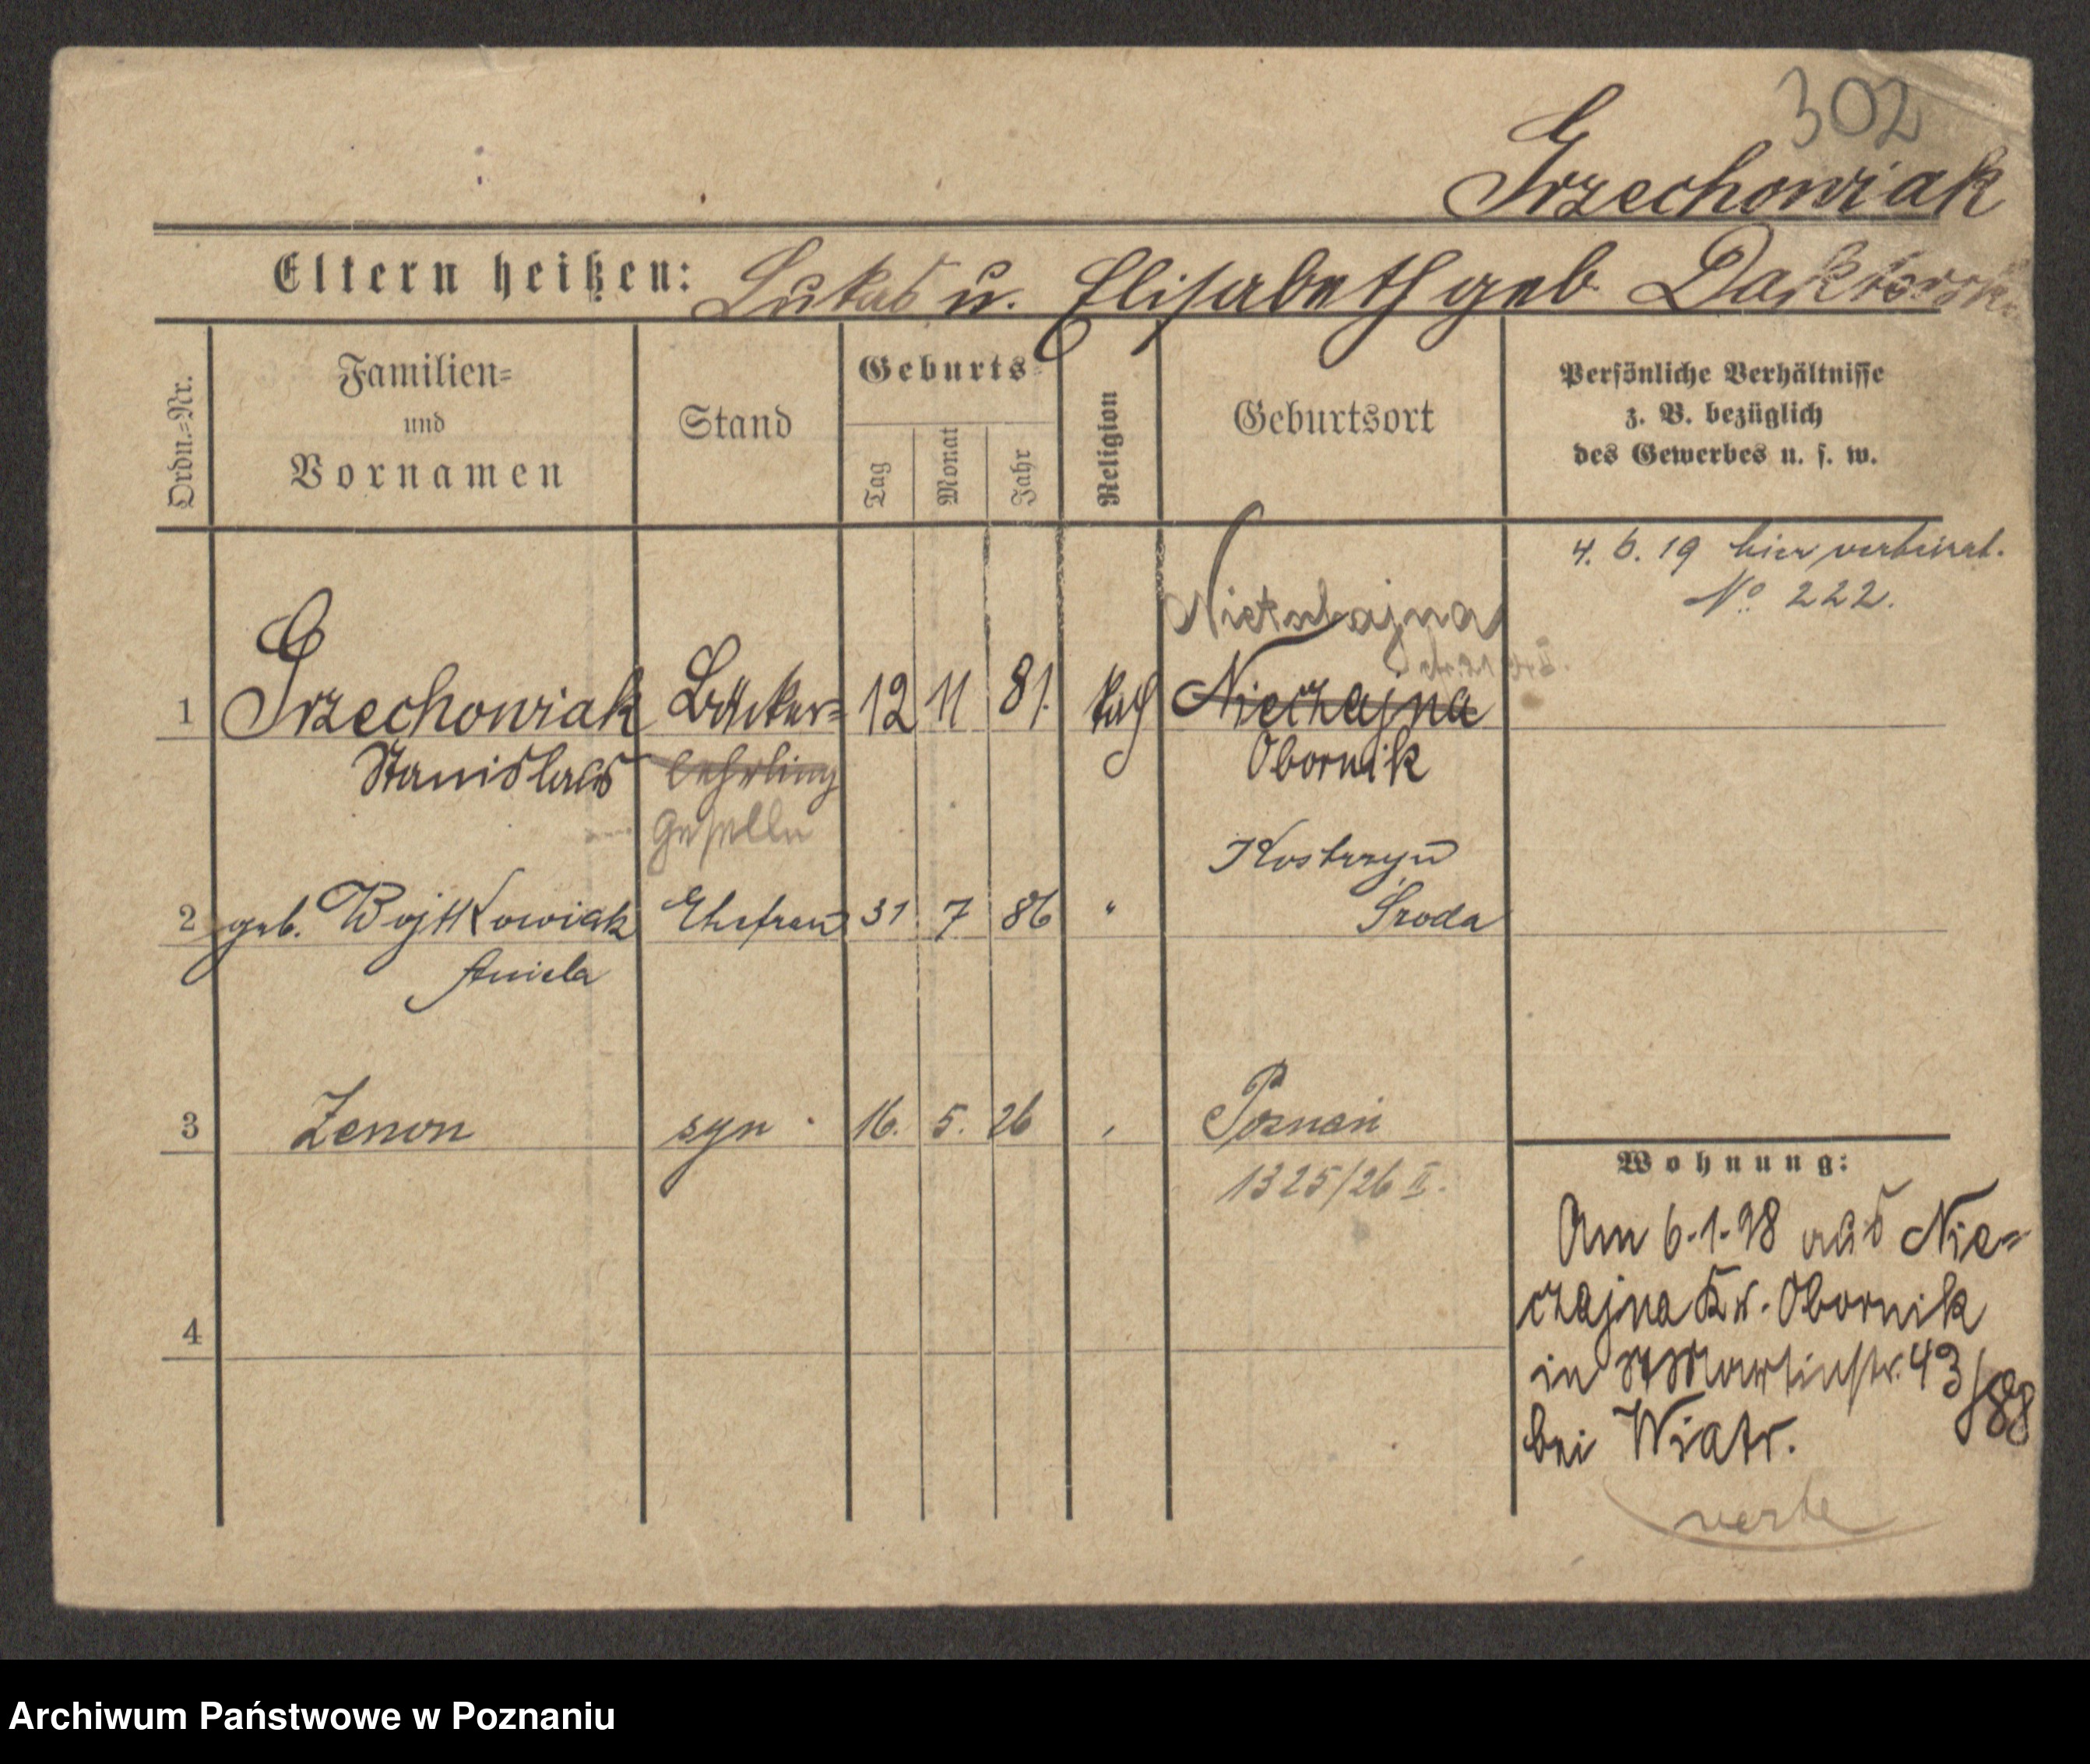 302
Grzechowiak
Eltern heißen: Lukas u. Elisabeth geb.
Ordn.=Nr.
Familien=
und
Vornamen
Stand
Geburts=
Tag
Monat
Jahr
Religion
Geburtsort
Persönliche Verhältnisse
z. B. bezüglich
des Gewerbes u. s. w.
4. 6. 19 hier verheirat.
No. 222.
1 Grzechowiak Bäcker= 12 11 81. kath Nieczajna
Stanislaus lehrling Obornik
Geselle
Kostrzyn
2 geb. Wojtkowiak Ehefrau 31 7 86 " Środa
Aniela
3 Zenon syn 16. 5. 26 Poznań
1325/26 II.
4
Wohnung:
Am 6.1.98 aus Nie=
czajna Kr. Obornik
in St Martinstr. 43
bei Wiatr.
verte
Archiwum Państwowe w Poznaniu